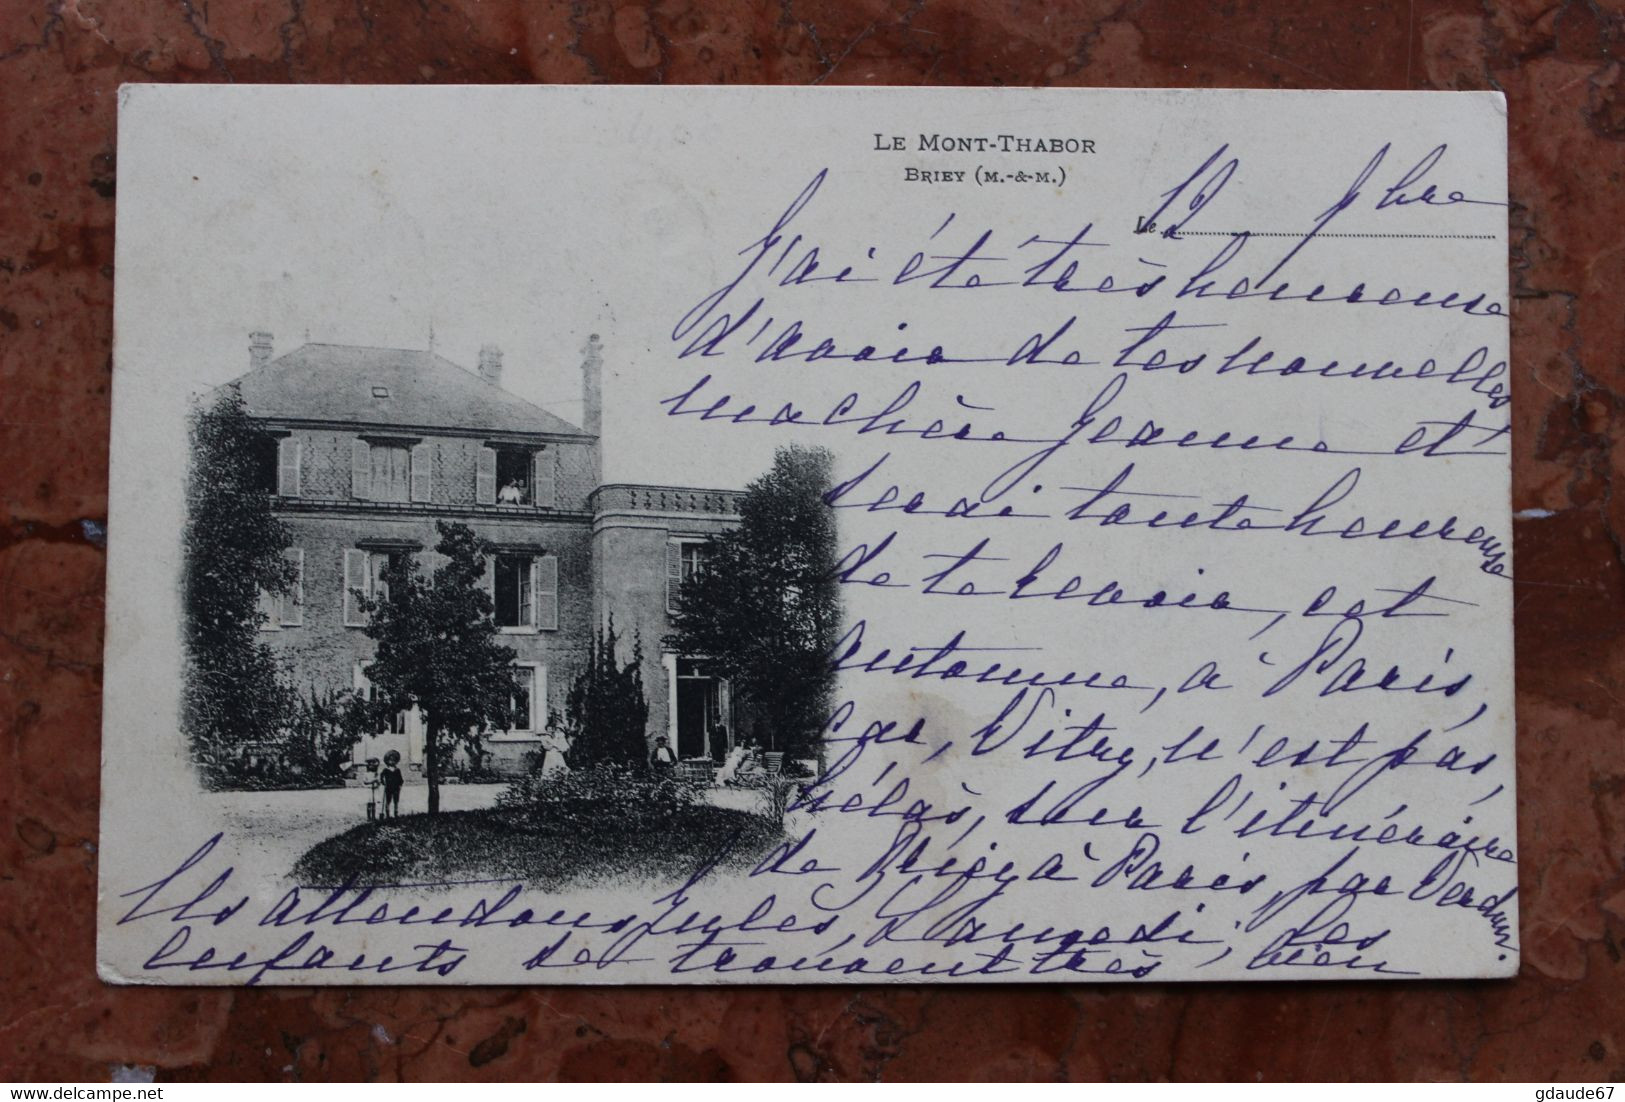 LE MONT-THABOR
BRIEY (M.-&-M.)
Le 12 9bre
J'ai été très heureuse
d'avoir de tes nouvelles
ma chère Jeanne et
serai toute heureuse
de te revoir, cet
automne, à Paris,
car, Vitry, n'est pas,
hélas, sur l'itinéraire
de Briey à Paris, par Verdun.
Ils attendons Jules, Samedi; les
enfants se trouvent très bien
www.delcampe.net
gdaude67